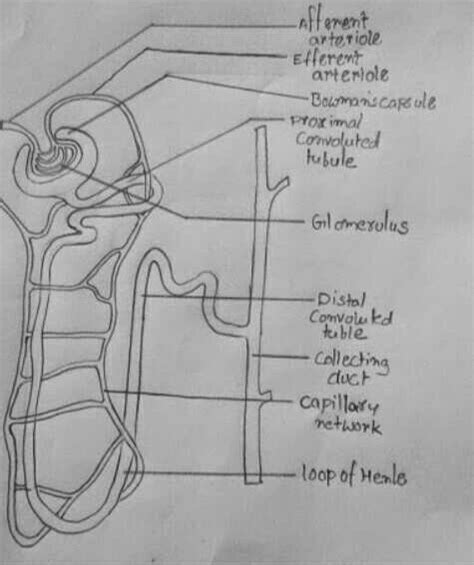 Afferent
arteriole
Efferent
arteriole
Bowman's capsule
Proximal
Convoluted
tubule
Glomerulus
Distal
Convoluted
tuble
Collecting
duct
Capillary
network
loop of Henle